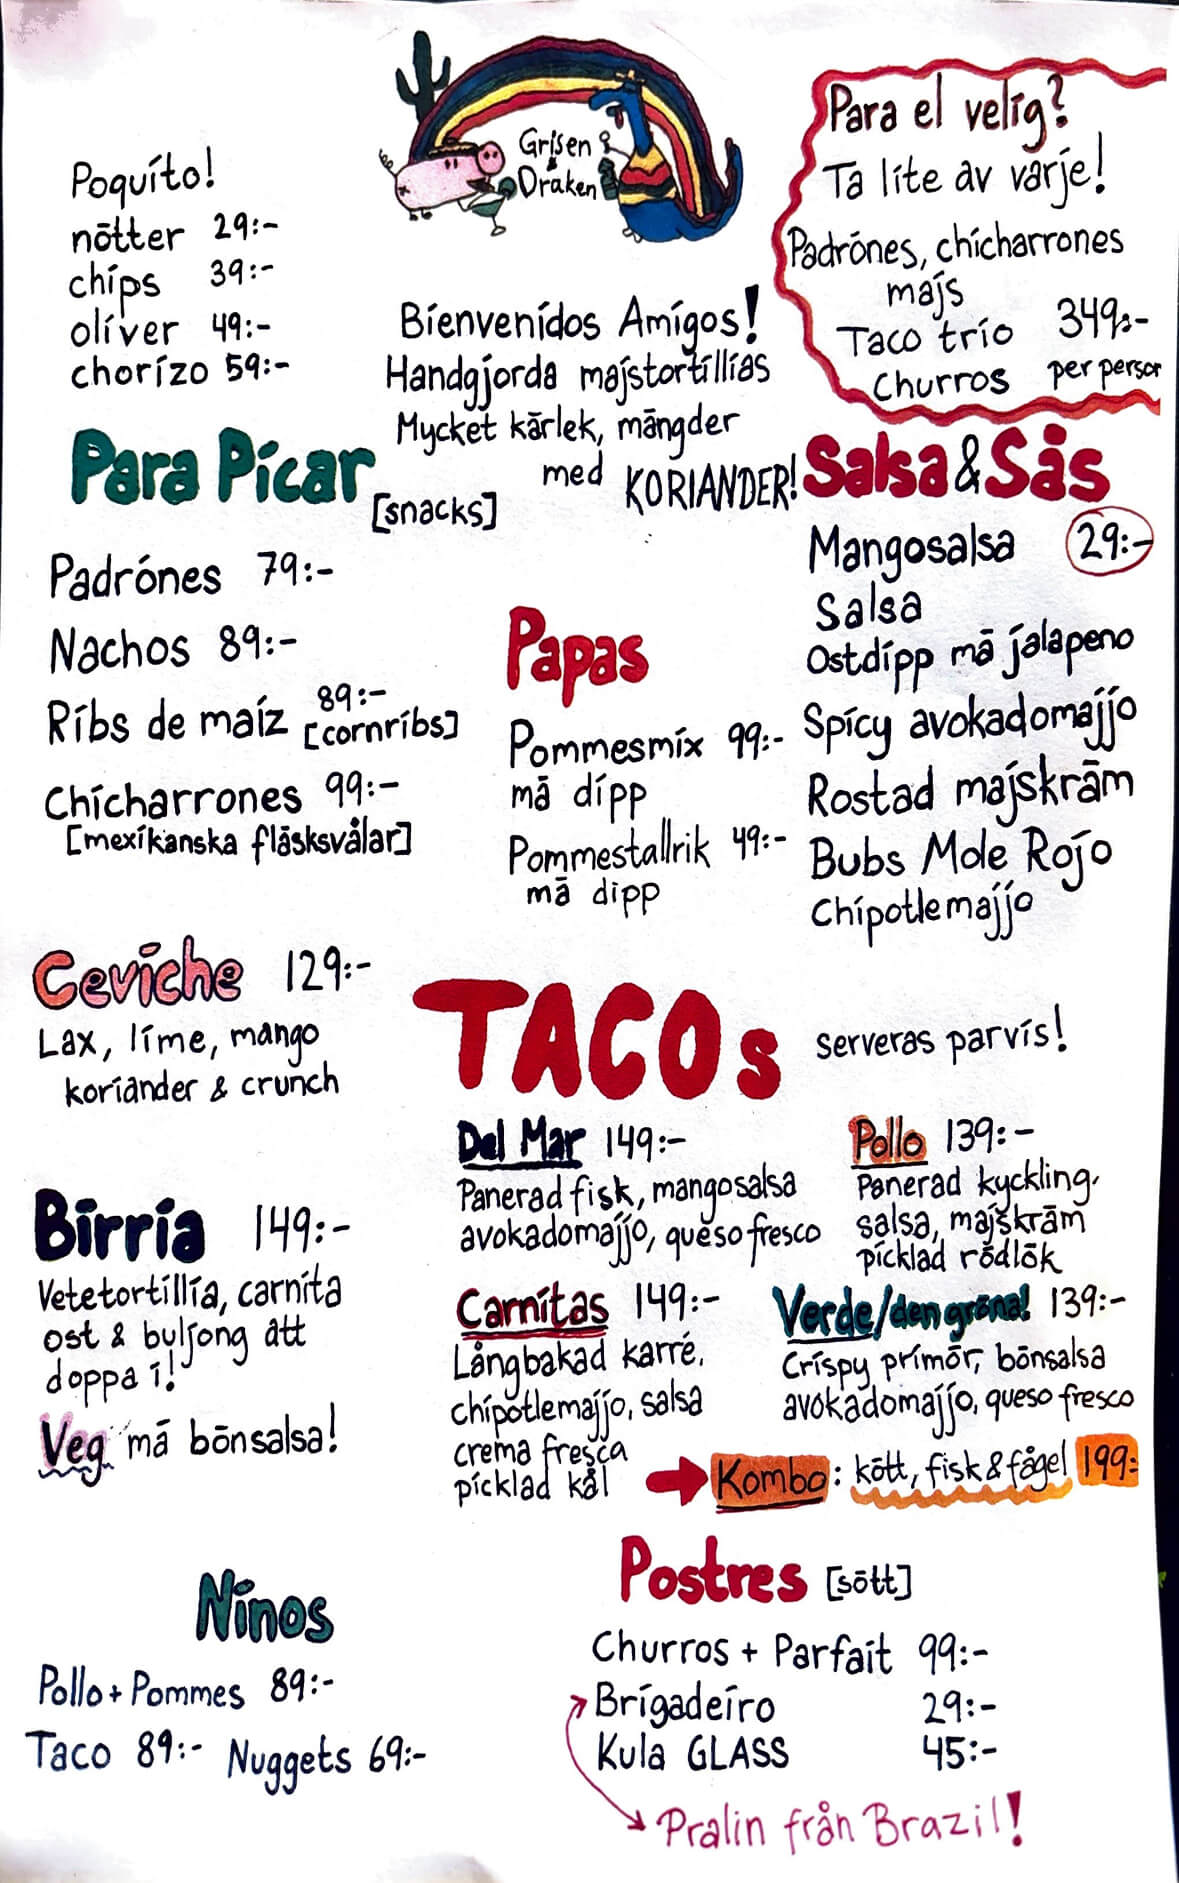 Poquito!
nötter 29:-
chips 39:-
oliver 49:-
chorizo 59:-
Grisen &
Draken
Bienvenidos Amigos!
Handgjorda majstortillias
Mycket kärlek, mängder
med KORIANDER!
Para el velig?
Ta lite av varje!
Padrónes, chicharrones
majs
Taco trio 349:-
churros per person
Para Picar
[snacks]
Padrónes 79:-
Nachos 89:-
Ribs de maiz 89:-
[cornribs]
Chicharrones 99:-
[mexikanska fläsksvålar]
Papas
Pommesmix 99:-
mä dipp
Pommestallrik 49:-
mä dipp
Salsa & Sås
Mangosalsa 29:-
Salsa
Ostdipp mä jalapeno
Spicy avokadomajjo
Rostad majskräm
Bubs Mole Rojo
Chipotlemajjo
Ceviche 129:-
Lax, lime, mango
koriander & crunch
Birria 149:-
Vetetortillia, carnita
ost & buljong att
doppa i!
Veg mä bönsalsa!
TACOs serveras parvis!
Del Mar 149:-
Panerad fisk, mangosalsa
avokadomajjo, queso fresco
Pollo 139:-
Panerad kyckling,
salsa, majskräm
picklad rödlök
Carnitas 149:-
Långbakad karré,
chipotlemajjo, salsa
crema fresca
picklad kål
Verde/den gröna! 139:-
Crispy primör, bönsalsa
avokadomajjo, queso fresco
Kombo: kött, fisk & fågel 199:-
Ninos
Pollo + Pommes 89:-
Taco 89:- Nuggets 69:-
Postres [sött]
Churros + Parfait 99:-
Brigadeiro 29:-
Kula GLASS 45:-
Pralin från Brazil!